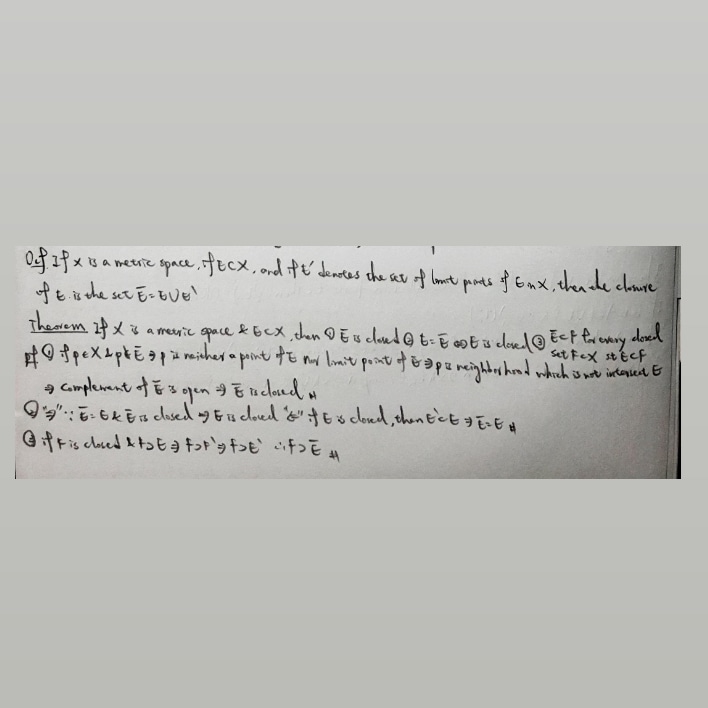 Def. If X is a metric space, if E⊂X, and if E' denotes the set of limit points of E in X, then the closure
of E is the set Ē = E∪E'
Theorem If X is a metric space & E⊂X, then ① Ē is closed ② E=Ē ⇔ E is closed ③ Ē⊂F for every closed
set F⊂X st E⊂F
pf ① if p∈X & p∉Ē ⇒ p is neither a point of E nor limit point of E ⇒ p is neighborhood which is not intersect E
⇒ complement of Ē is open ⇒ Ē is closed #
② "⇒" ∵ Ē=E & Ē is closed ⇒ E is closed "⇐" if E is closed, then E'⊂E ⇒ Ē=E #
③ if F is closed & F⊃E ⇒ F⊃F' ⇒ F⊃E' ∴ F⊃Ē #